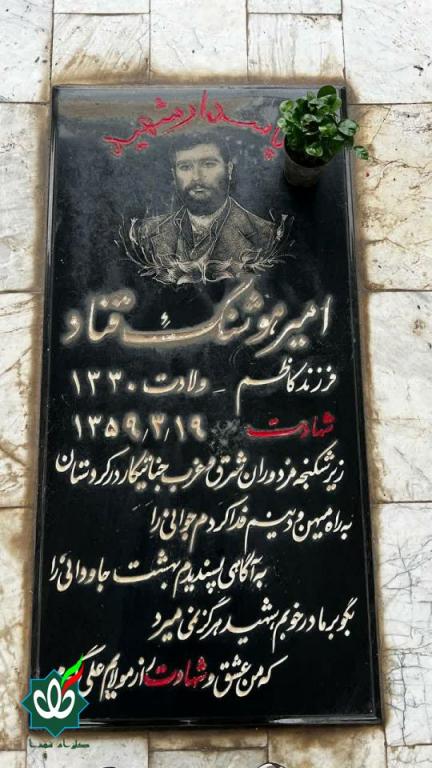 پاسدار شهید
امیر هوشنگ قناد
فرزند کاظم _ ولادت ۱۳۳۰
شهادت ۱۳۵۹/۳/۱۹
زیر شکنجه مزدوران شرق و غرب جنایتکار در کردستان
به راه میهن و دینم فدا کردم جوانی را
به آگاهی پسندیدم بهشت جاودانی را
بگو بر مادر خوبم شهید هرگز نمی میرد
که من عشق و شهادت را از مولایم علی